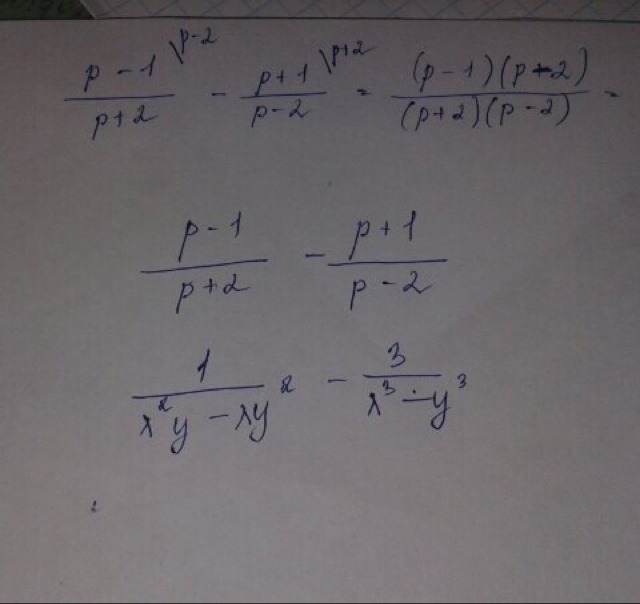 \frac{p-1}{p+2}^{\backslash p-2} - \frac{p+1}{p-2}^{\backslash p+2} = \frac{(p-1)(p-2)}{(p+2)(p-2)} =
\frac{p-1}{p+2} - \frac{p+1}{p-2}
\frac{1}{x^2y - xy^2} - \frac{3}{x^3 - y^3}